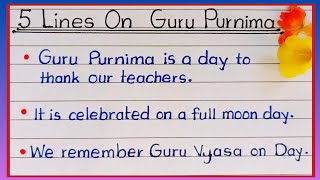 5 Lines On Guru Purnima
• Guru Purnima is a day to
thank our teachers.
• It is celebrated on a full moon day.
• We remember Guru Vyasa on Day.